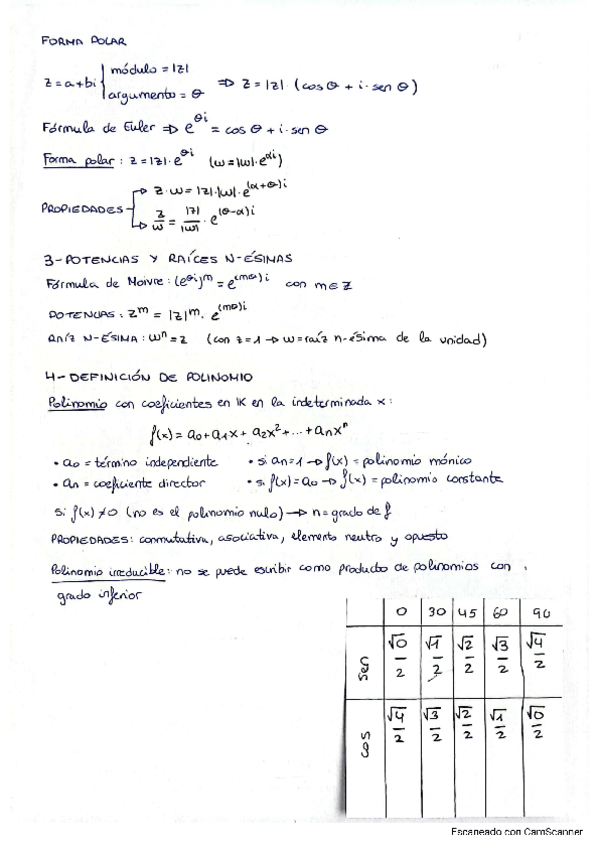 FORMA POLAR
z=a+bi { módulo = |z|
argumento = θ ⇒ z = |z| · (cos θ + i · sen θ)
Fórmula de Euler ⇒ e^θi = cos θ + i · sen θ
Forma polar : z = |z| · e^θi (w = |w| · e^αi)
PROPIEDADES → z · w = |z| · |w| · e^(α+θ)i
→ z/w = |z|/|w| · e^(θ-α)i
3-POTENCIAS Y RAÍCES N-ÉSIMAS
Fórmula de Moivre: (e^θi)^m = e^(mθ)i con m∈Z
POTENCIAS: z^m = |z|^m · e^(mθ)i
RAÍZ N-ÉSIMA: w^n = z (con z=1 → w=raíz n-ésima de la unidad)
4-DEFINICIÓN DE POLINOMIO
Polinomio con coeficientes en IK en la indeterminada x:
f(x) = a₀ + a₁x + a₂x² + ... + aₙxⁿ
• a₀ = término independiente • si aₙ=1 → f(x) = polinomio mónico
• aₙ = coeficiente director • si f(x)=a₀ → f(x) = polinomio constante
si f(x) ≠ 0 (no es el polinomio nulo) → n = grado de f
PROPIEDADES: conmutativa, asociativa, elemento neutro y opuesto
Polinomio irreducible: no se puede escribir como producto de polinomios con
grado inferior
0 30 45 60 90
sen √0/2 √1/2 √2/2 √3/2 √4/2
cos √4/2 √3/2 √2/2 √1/2 √0/2
Escaneado con CamScanner